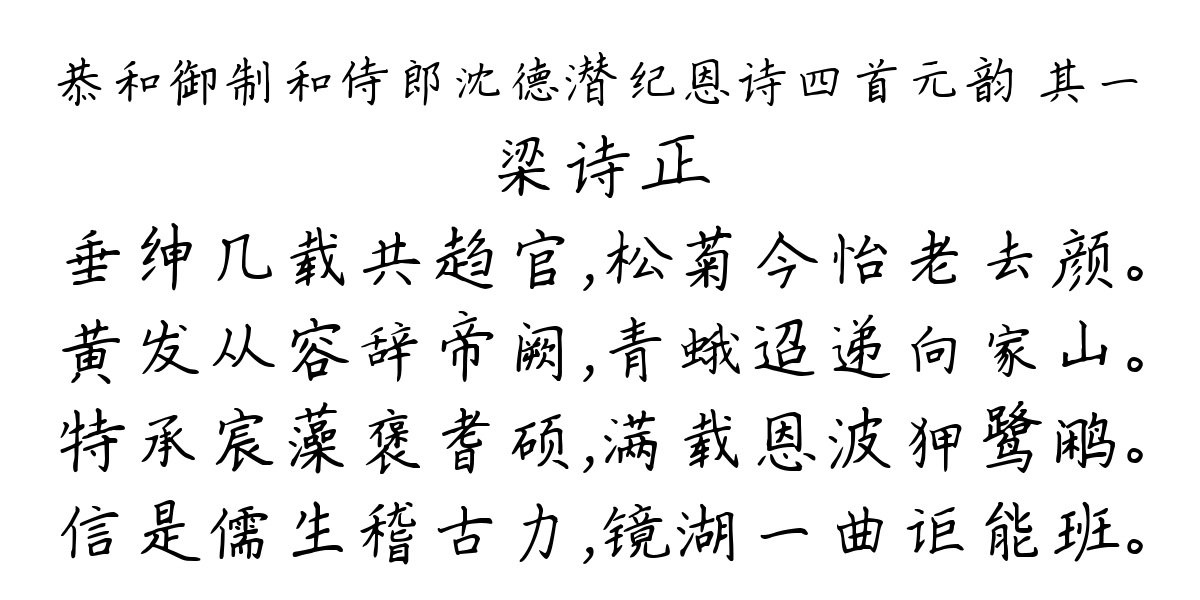 恭和御制和侍郎沈德潜纪恩诗四首元韵 其一
梁诗正
垂绅几载共趋官,松菊今怡老去颜。
黄发从容辞帝阙,青蛾迢递向家山。
特承宸藻褒耆硕,满载恩波狎鹭鹇。
信是儒生稽古力,镜湖一曲讵能班。